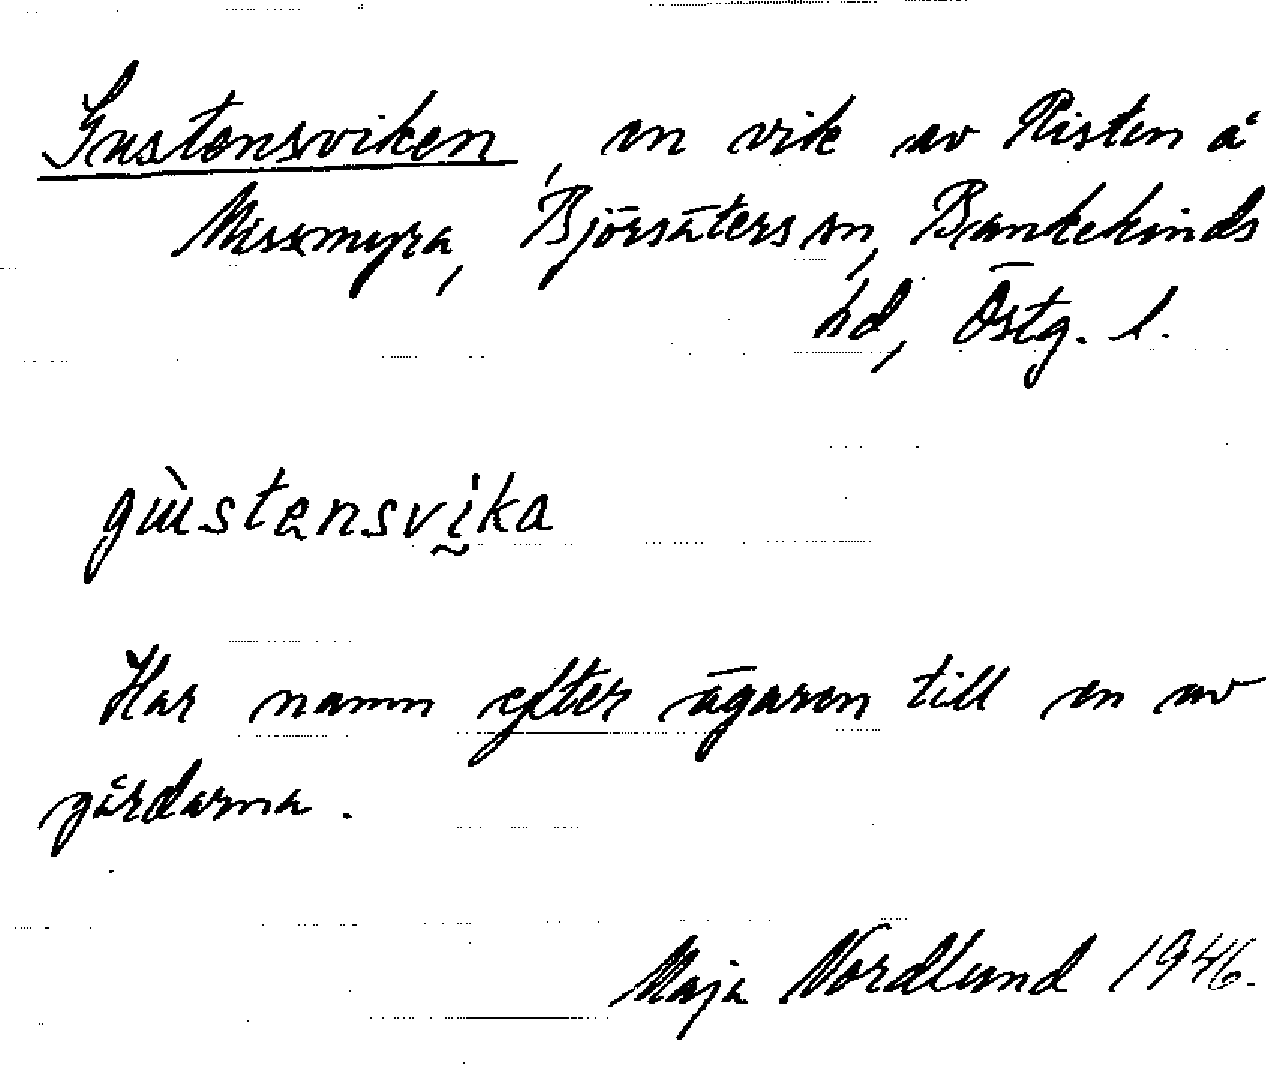 Gustensviken, en vik av Risten å
Missmyra, Björsäters sn, Bankekinds
hd, Östg. l.
gùstensvika
Har namn efter ägaren till en av
gårdarna.
Maja Nordlund 1946.